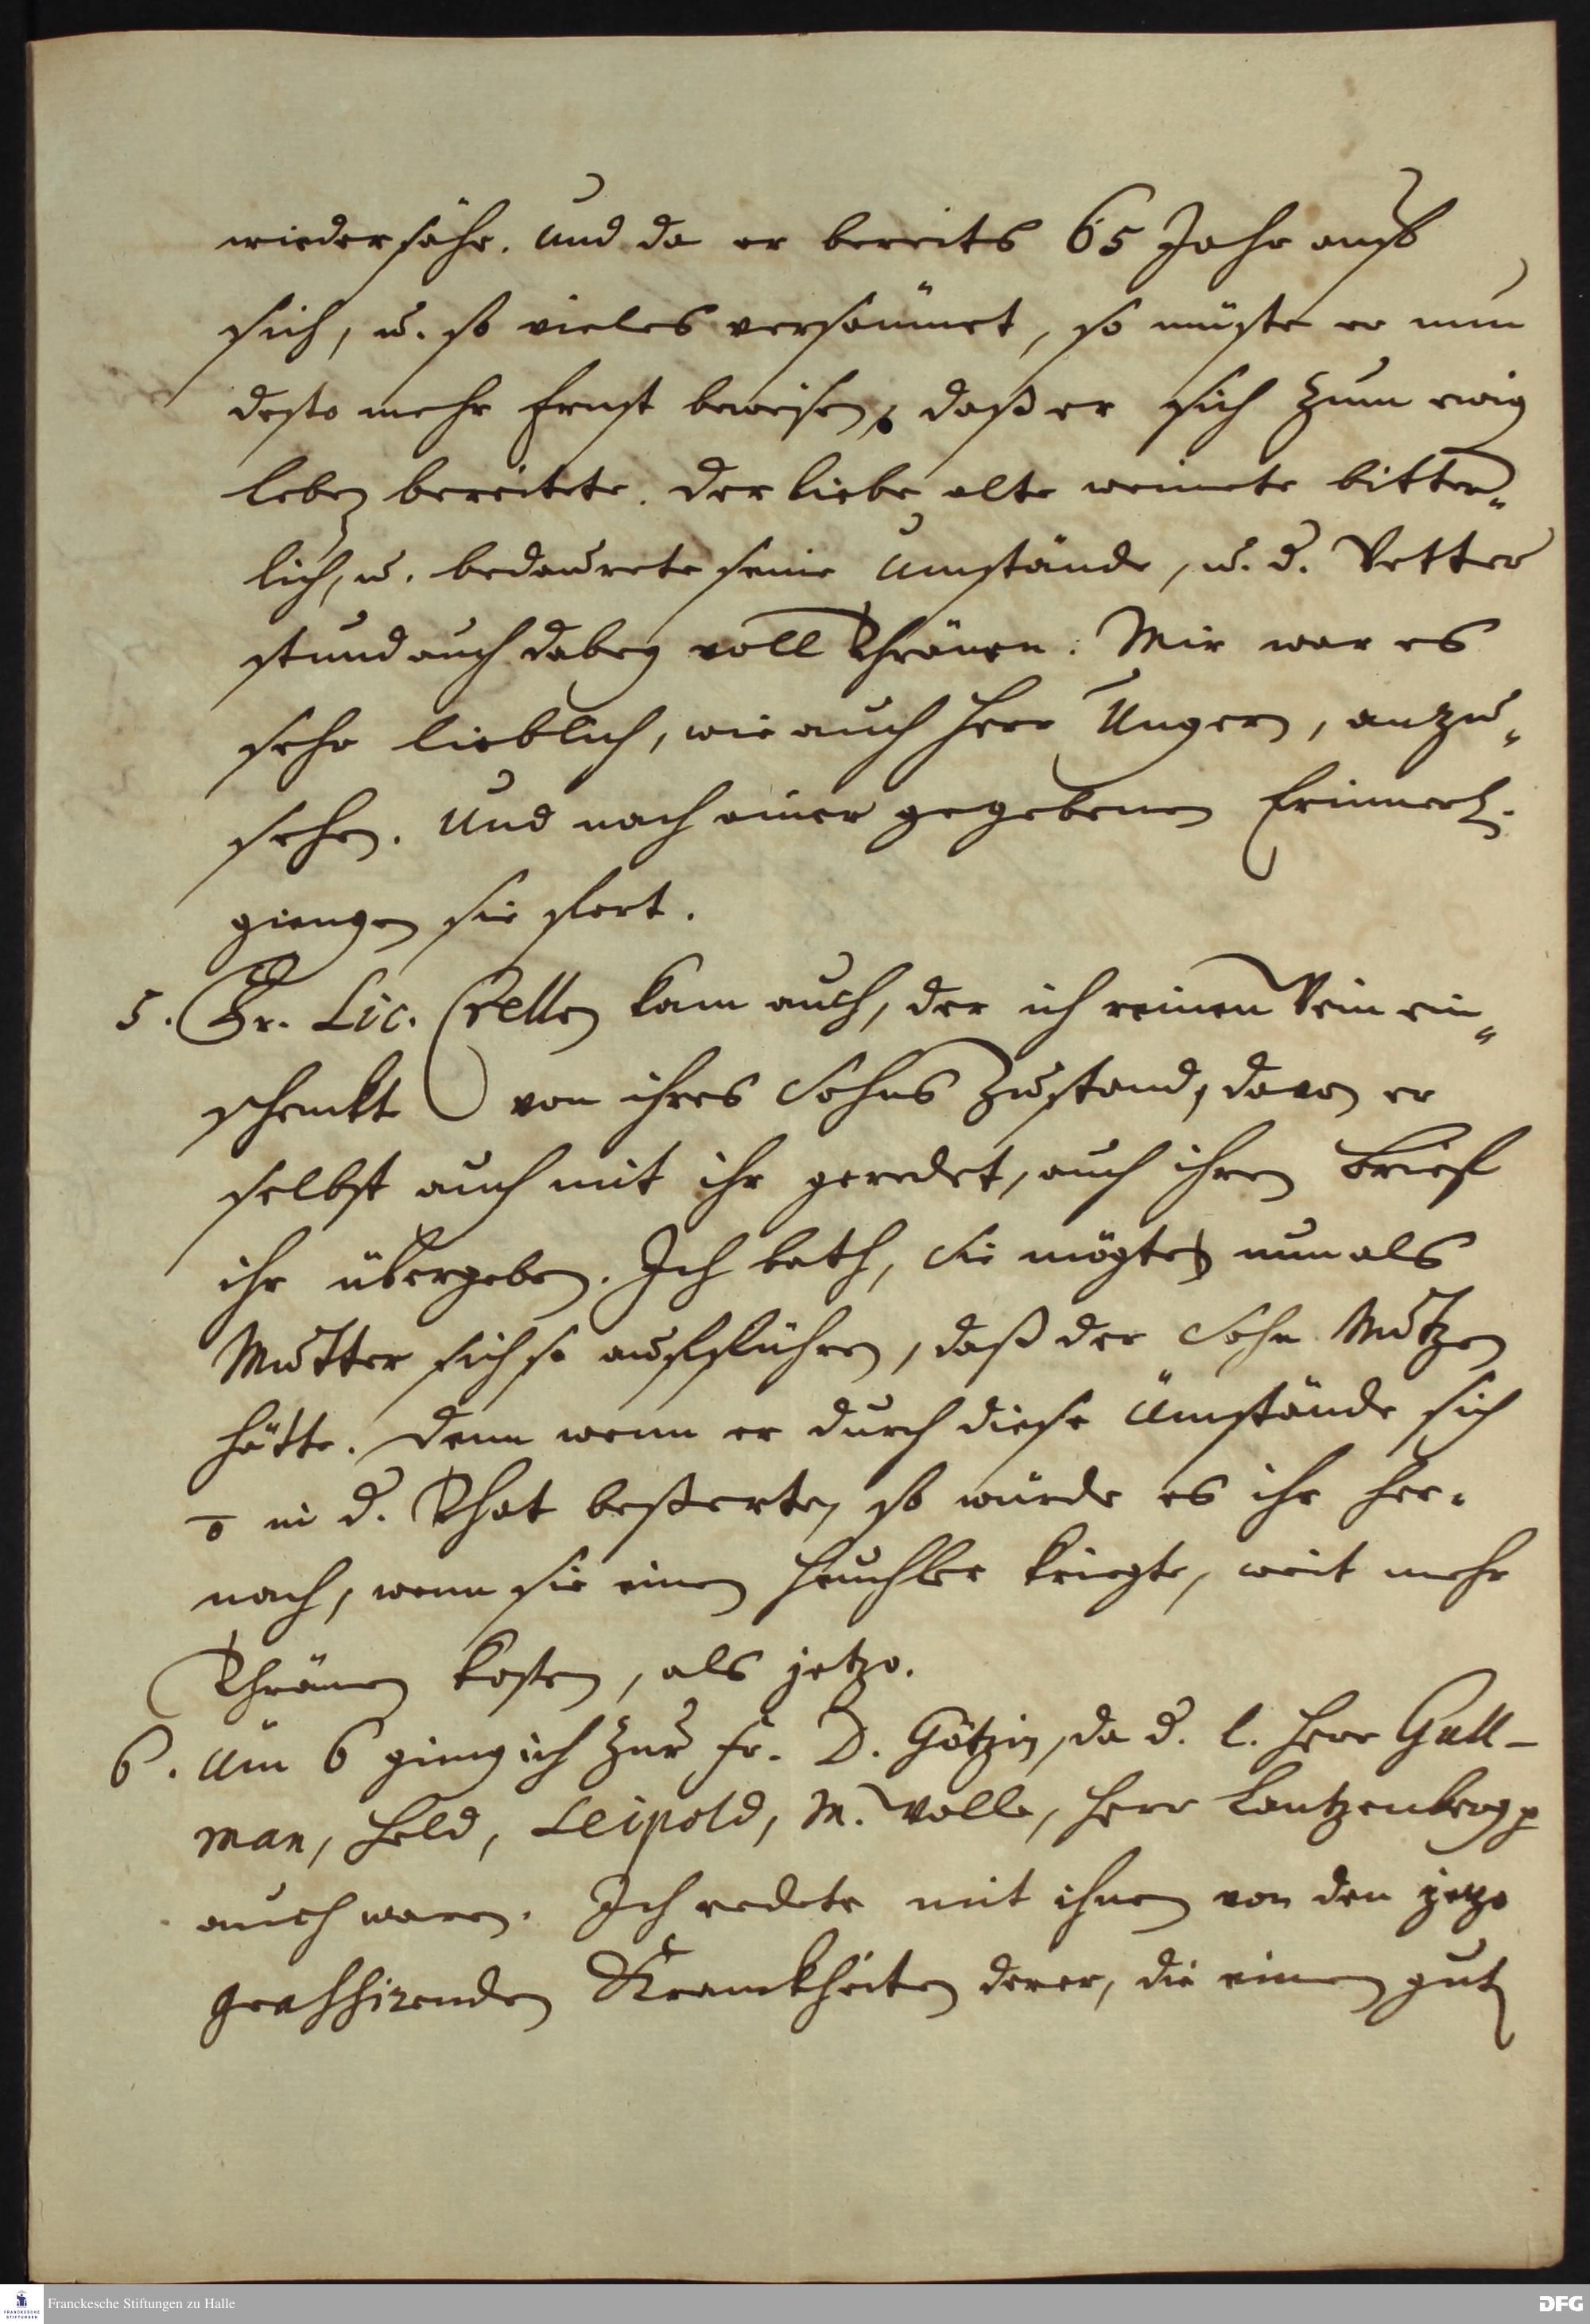 wiedersähe. Und da er bereits 65 Jahr auf
sich, u. so vieles versäumet, so müste er nun
desto mehr Ernst beweisen, daß er sich zum ewig
leben bereitete. Der liebe alte weinete bitter„
lich, u. bedaurete seine Umstände, u. d. Vetter
stund auch dabey voll Thränen. Mir war es
sehr lieblich, wie auch Herr Ungern, anzu„
sehen. Und nach einer gegebenen Erinner.
giengen sie fort.
5. Fr. Lic. Crellen kam auch, der ich reinen Wein ein„
schenkte von ihres Sohns Zustand, davon er
selbst auch mit ihr geredet, auch ihren Brief
ihr übergeben. Ich bath, Sie mögte nun als
Mutter sich so aufführen, daß der Sohn Nutzen
hätte. Denn wenn er durch diese Umstände sich
in d. That beßerte, so würde es ihr her„
nach, wenn sie einen Heuchler kriegte, weit mehr
Thränen kosten, als jetzo.
6. Um 6 gieng ich zur Fr. D. Götzin, da d. l. Herr Gull-
man, Held, Leipold, M. Volle, Herr Lantzenberg p
auch waren. Ich redete mit ihnen von den jetzo
grassirenden Kranckheiten derer, die einen gut
Franckesche Stiftungen zu Halle
FRANCKESCHE
STIFTUNGEN
DFG